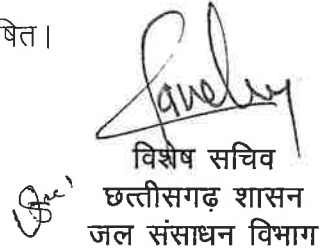 षित।
विशेष सचिव
छत्तीसगढ़ शासन
जल संसाधन विभाग